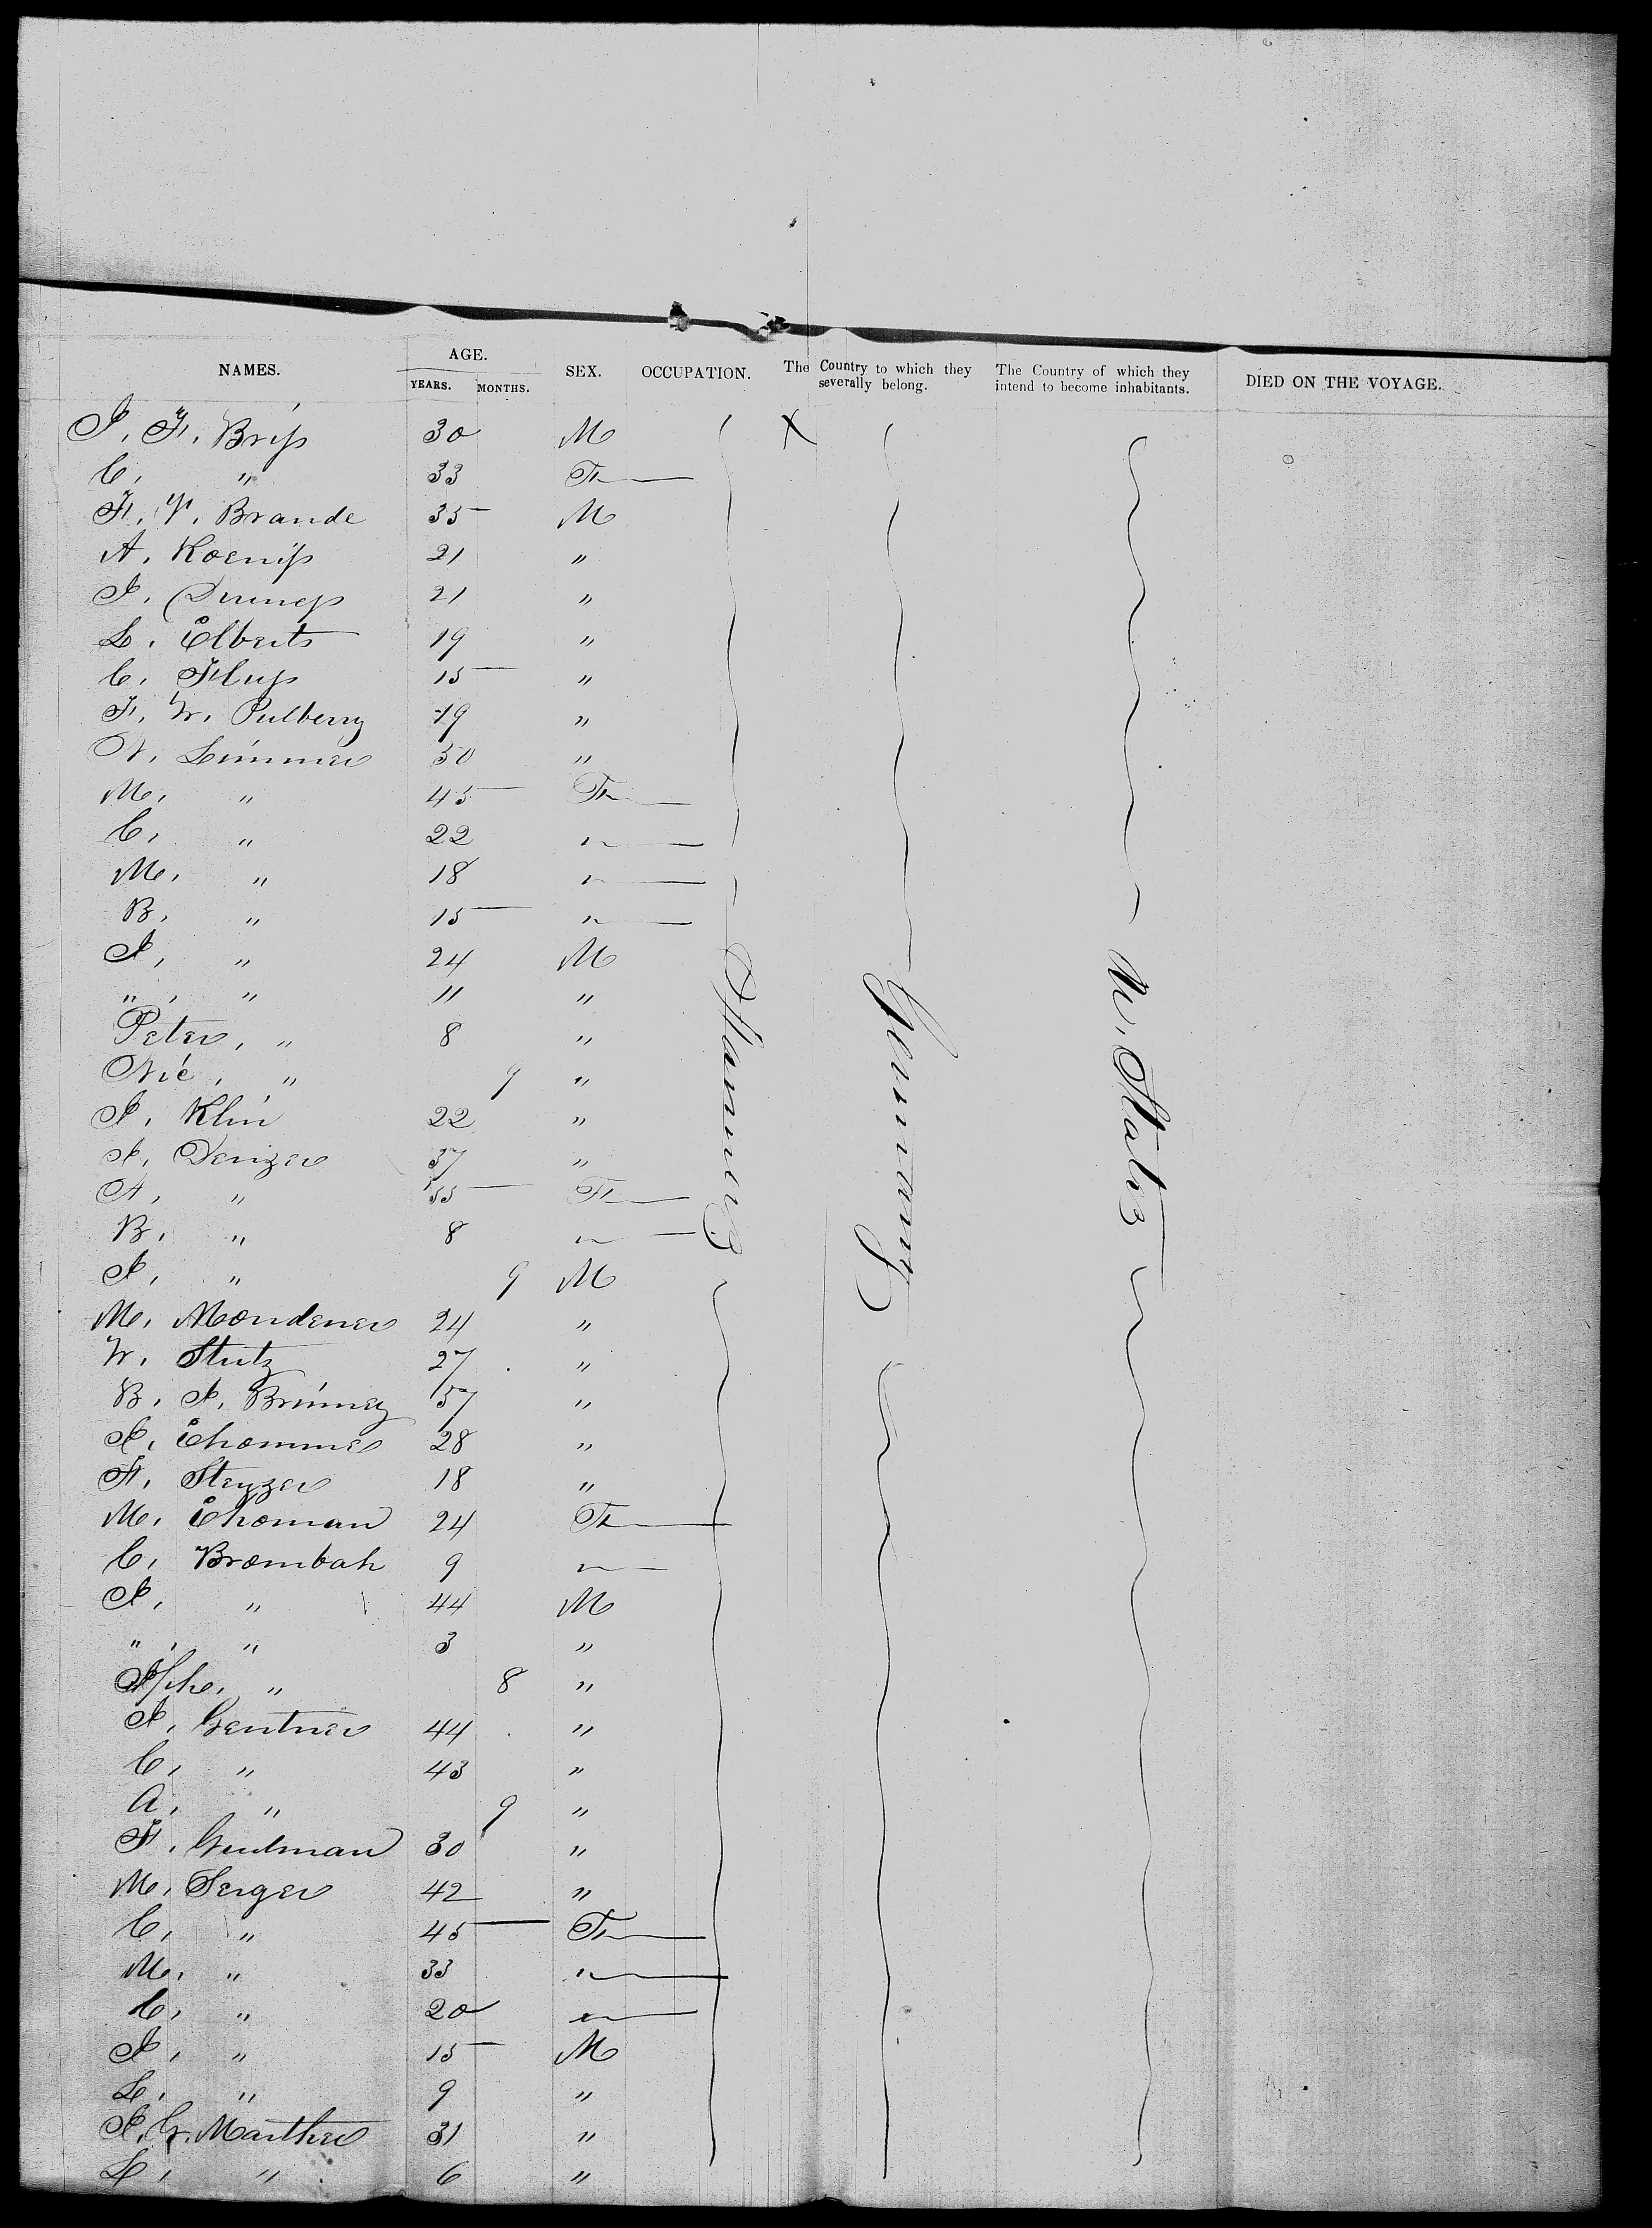 NAMES. AGE. YEARS. MONTHS. SEX. OCCUPATION. The Country to which they severally belong. The Country of which they intend to become inhabitants. DIED ON THE VOYAGE.
J. F. Briss 30 M X
C. " 33 F
F. V. Brande 35 M
A. Koeniss 21 "
J. 21 "
L. Elberts 19 "
C. 15 "
F. W. Pulberry 19 "
N. Limmer 50 "
M. " 45 F
C. " 22 "
M. " 18 "
B. " 15 "
J. " 24 M
" " 11 "
Peter, " 8 "
Nic, " 9 "
J. Klin 22 "
J. Denzer 37 "
A. " 35 F
B. " 8 "
J. " 9 M
M. Mondener 24 "
W. Stutz 27 "
B. J. 37 "
J. Thomme 28 "
F. Steyzer 18 "
M. Thoman 24 F
C. Brombah 9 "
J. " 44 M
" " 3 "
" 8 "
J. Gentner 44 "
C. " 43 "
A. " 9 "
F. Guttman 30 "
M. Serger 42 "
C. " 45 F
M. " 33 "
C. " 20 "
J. " 15 M
L. " 9 "
J. G. Marther 31 "
L. " 6 "
Farmers
Germany
U. States